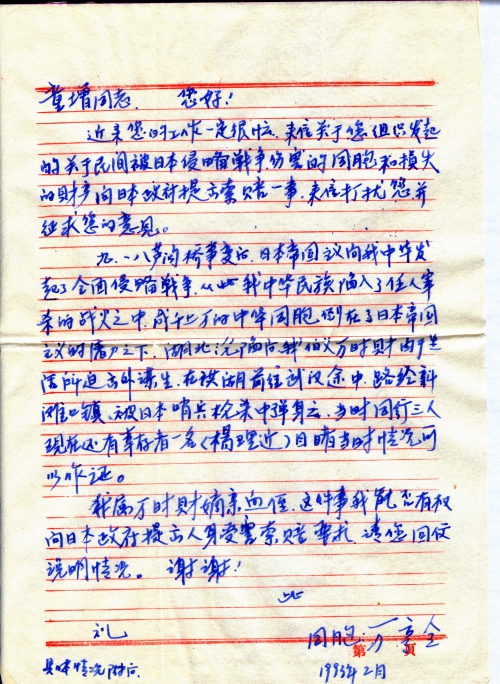 童增同志 您好!
近来您的工作一定很忙,来信关于您组织发起
的关于民间被日本侵略战争伤害的同胞和损失
的财产向日本政府提出索赔一事,来信打扰您并
征求您的意见。
九.一八芦沟桥事变后,日本帝国主义向我中华发
起了全面侵略战争,从此我中华民族陷入了任人宰
杀的战火之中,成千上万的中华同胞倒在了日本帝国
主义的屠刀之下,湖北沔阳 我伯父万时财由于生
活所迫去外谋生,在洪湖前往武汉途中,路经新
滩口镇,被日本哨兵枪杀中弹身亡,当时同行三人
现在还有幸存者一名(杨理近)目睹当时情况可
以作证。
我属万时财嫡亲血侄,这件事我能否有权
向日本政府提出人身受害索赔要求,请您回信
说明情况。 谢谢!
此
礼 同胞:万 全
第 页
具体情况附后 1993年2月